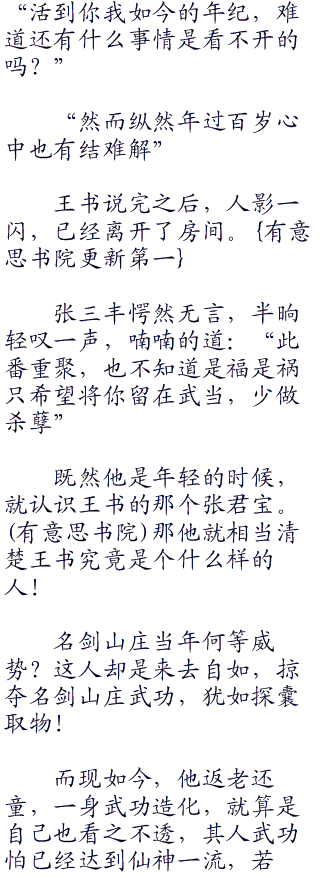 “活到你我如今的年纪，难
道还有什么事情是看不开的
吗？”
“然而纵然年过百岁心
中也有结难解”
王书说完之后，人影一
闪，已经离开了房间。{有意
思书院更新第一}
张三丰愕然无言，半晌
轻叹一声，喃喃的道：“此
番重聚，也不知道是福是祸
只希望将你留在武当，少做
杀孽”
既然他是年轻的时候，
就认识王书的那个张君宝。
(有意思书院)那他就相当清
楚王书究竟是个什么样的
人！
名剑山庄当年何等威
势？这人却是来去自如，掠
夺名剑山庄武功，犹如探囊
取物！
而现如今，他返老还
童，一身武功造化，就算是
自己也看之不透，其人武功
怕已经达到仙神一流，若